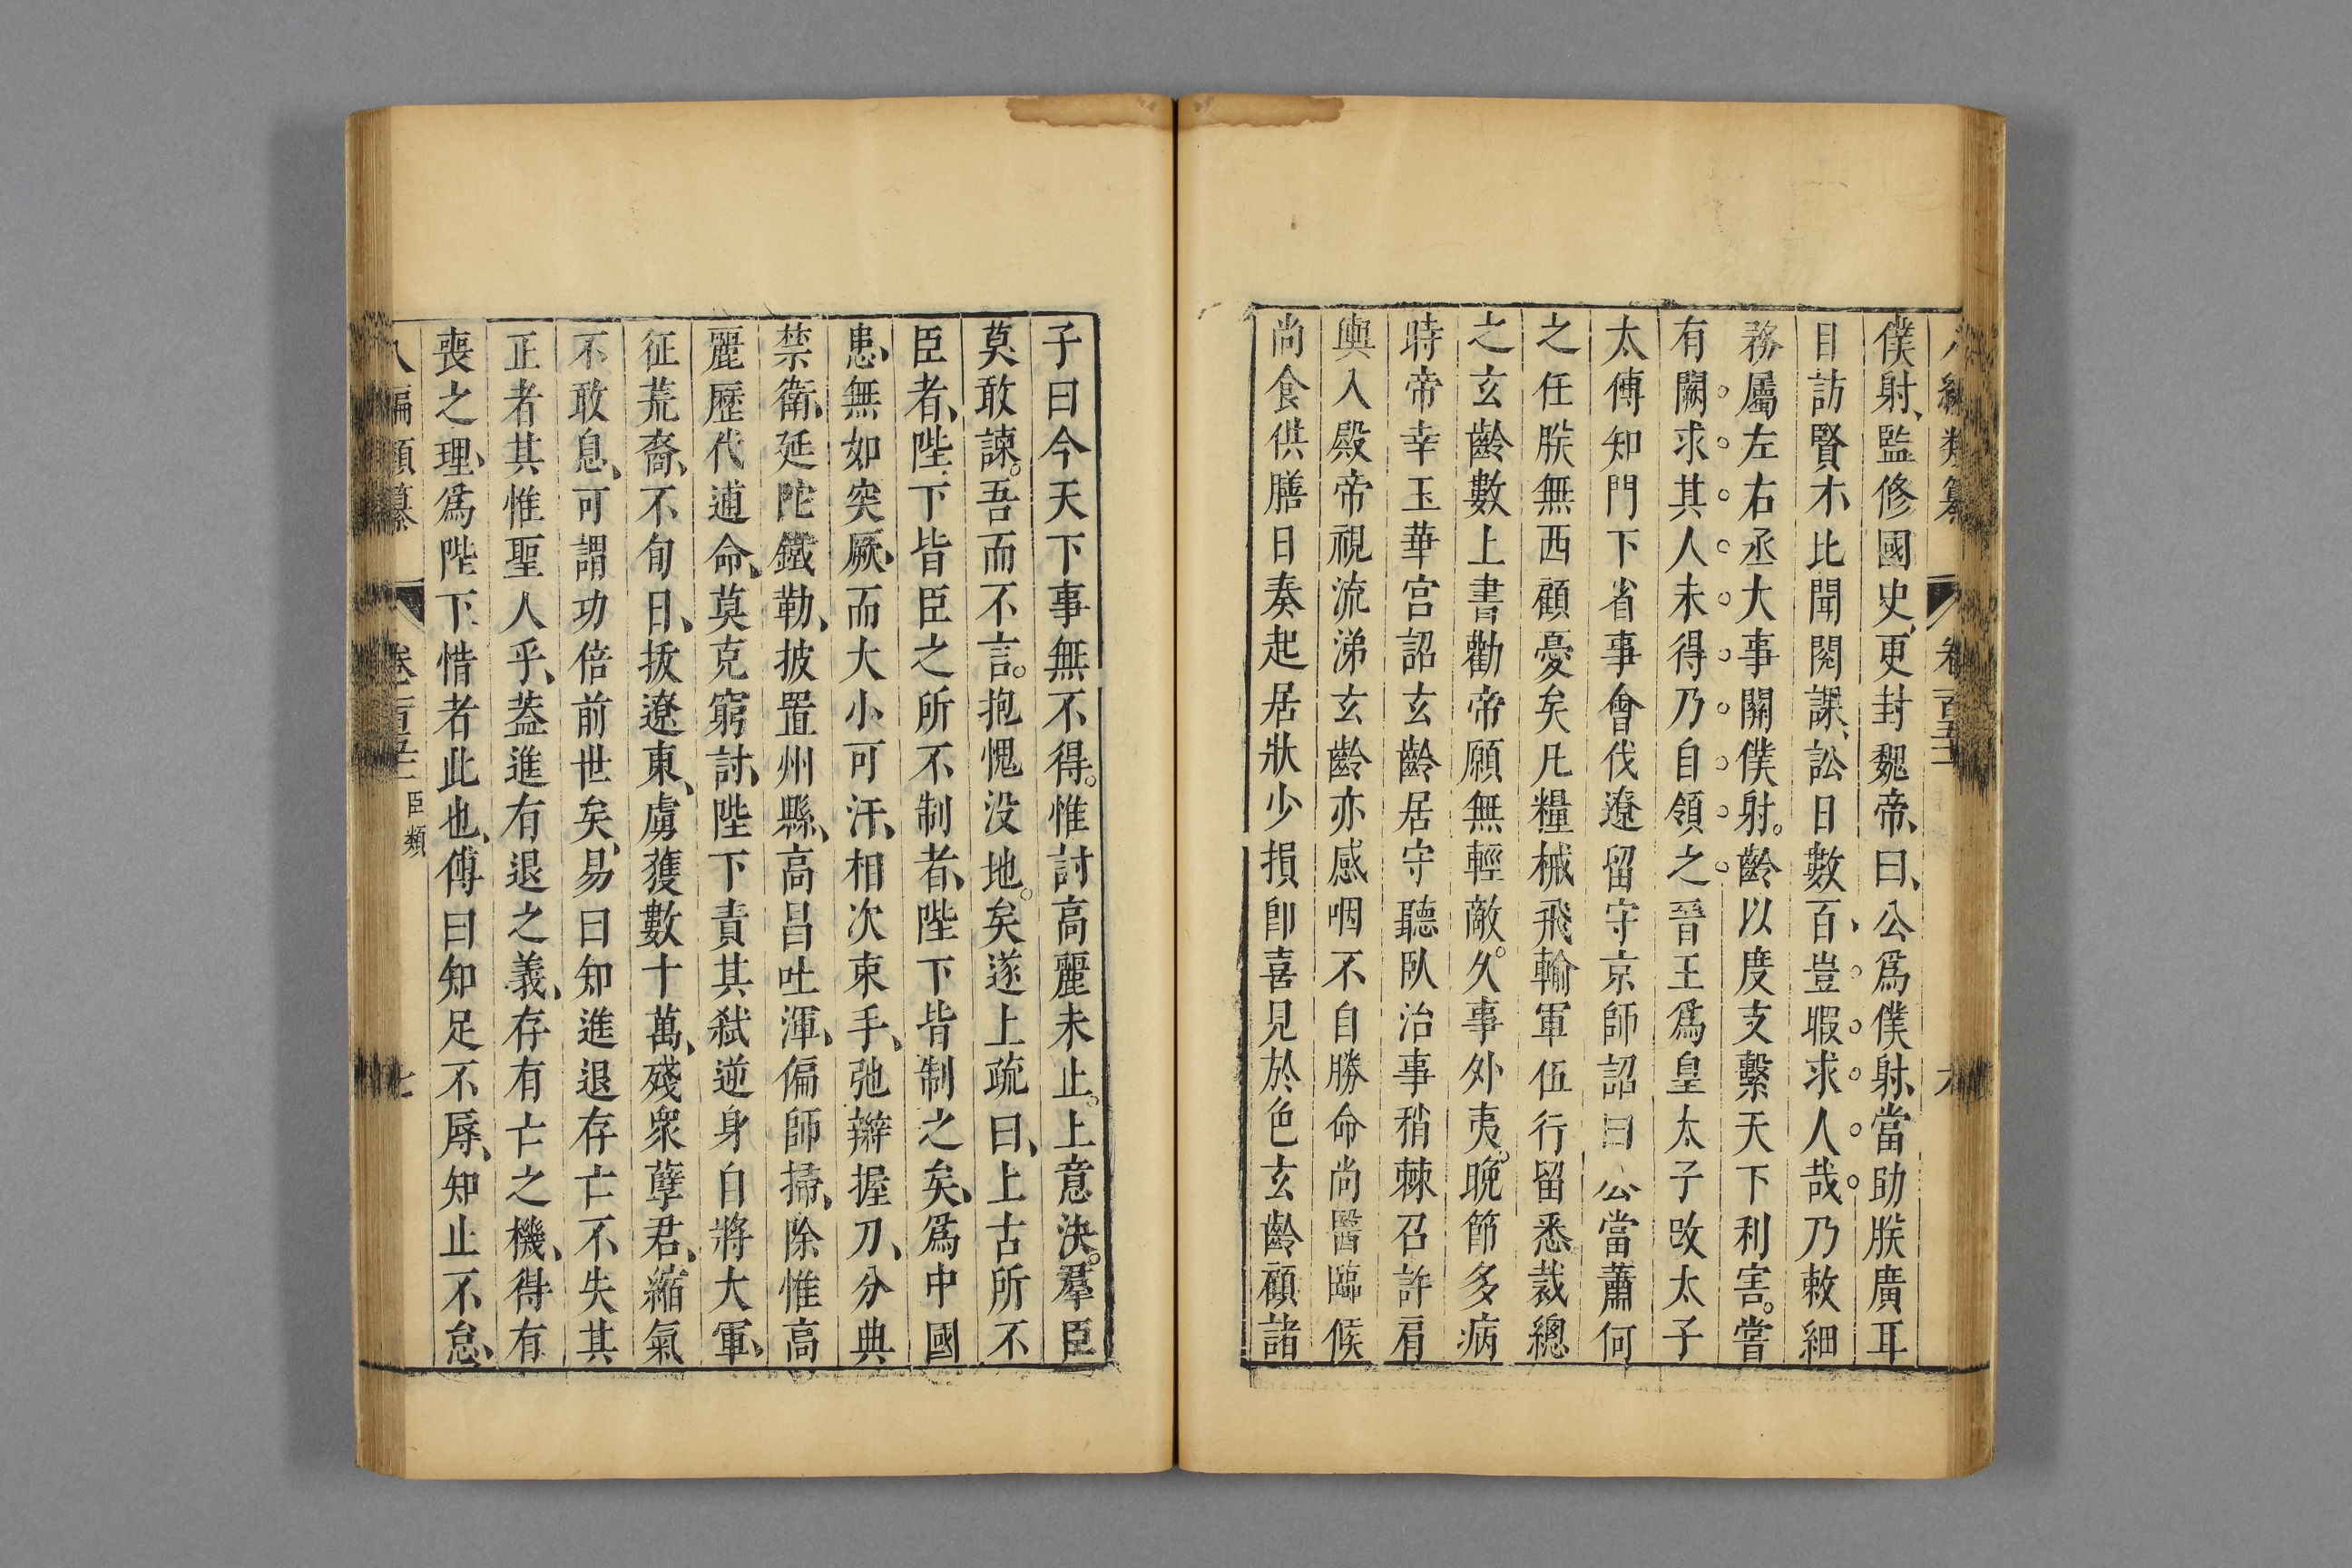 八編類纂 卷百五十二 六
僕射、監修國史、更封魏帝、曰、公爲僕射、當助朕廣耳
目訪賢才比聞閱諜、訟日數百、豈暇求人哉。乃敕細
務屬左右丞大事關僕射。齡以度支繫天下利害。嘗
有闕求其人未得乃自領之晉王爲皇太子改太子
太傅知門下省事會伐遼留守京師詔曰公當蕭何
之任朕無西顧憂矣凡糧械飛輸軍伍行留悉裁總
之玄齡數上書勸帝願無輕敵。久事外夷。晚節多病
時帝幸玉華宫詔玄齡居守聽臥治事稍棘召許肩
輿入殿帝視流涕玄齡亦感咽不自勝命尚醫臨候
尚食供膳日奏起居狀少損卽喜見於色玄齡顧諸
子曰今天下事無不得。惟討高麗未止。上意決。羣臣
莫敢諫。吾而不言。抱愧没地。矣遂上疏曰、上古所不
臣者、陛下皆臣之所不制者、陛下皆制之矣、爲中國
患、無如突厥、而大小可汗、相次束手、弛辮握刀、分典
禁衛、延陀鐵勒、披置州縣、高昌吐渾、偏師掃、除惟高
麗歷代逋命、莫克窮討、陛下責其弑逆身自將大軍、
征荒裔、不旬日、拔遼東、虜獲數十萬、殘衆孽君、縮氣
不敢息、可謂功倍前世矣、易曰知進退存亡不失其
正者其惟聖人乎、葢進有退之義、存有亡之機、得有
喪之理、爲陛下惜者此也、傳曰知足不辱、知止不怠、
八編類纂 卷百五十二 臣類 七